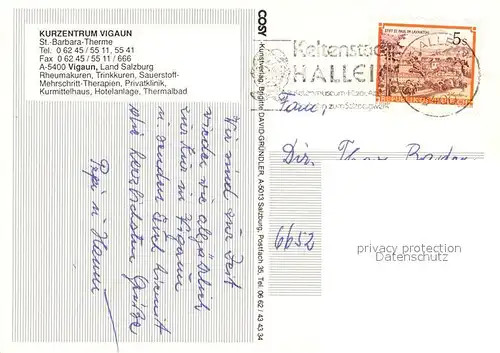 KURZENTRUM VIGAUN
St.-Barbara-Therme
Tel. 0 62 45 / 55 11, 55 41
Fax 0 62 45 / 55 11 / 666
A-5400 Vigaun, Land Salzburg
Rheumakuren, Trinkkuren, Sauerstoff-
Mehrschritt-Therapien, Privatklinik,
Kurmittelhaus, Hotelanlage, Thermalbad
Wir sind zur Zeit
wieder wie alljährlich
zur Kur in Vigaun
u. senden Euch hiermit
die herzlichsten Grüße
Pepi u. Hanni
COSY
Kunstverlag, Brigitte DAVID-GRÜNDLER, A-5013 Salzburg, Postfach 35, Tel. 06 62 / 43 43 34
STIFT ST. PAUL IM LAVANTTAL
5s
REPUBLIK ÖSTERREICH
Keltenstadt
HALLEIN
Fam.
Dir.
6652
privacy protection
Datenschutz